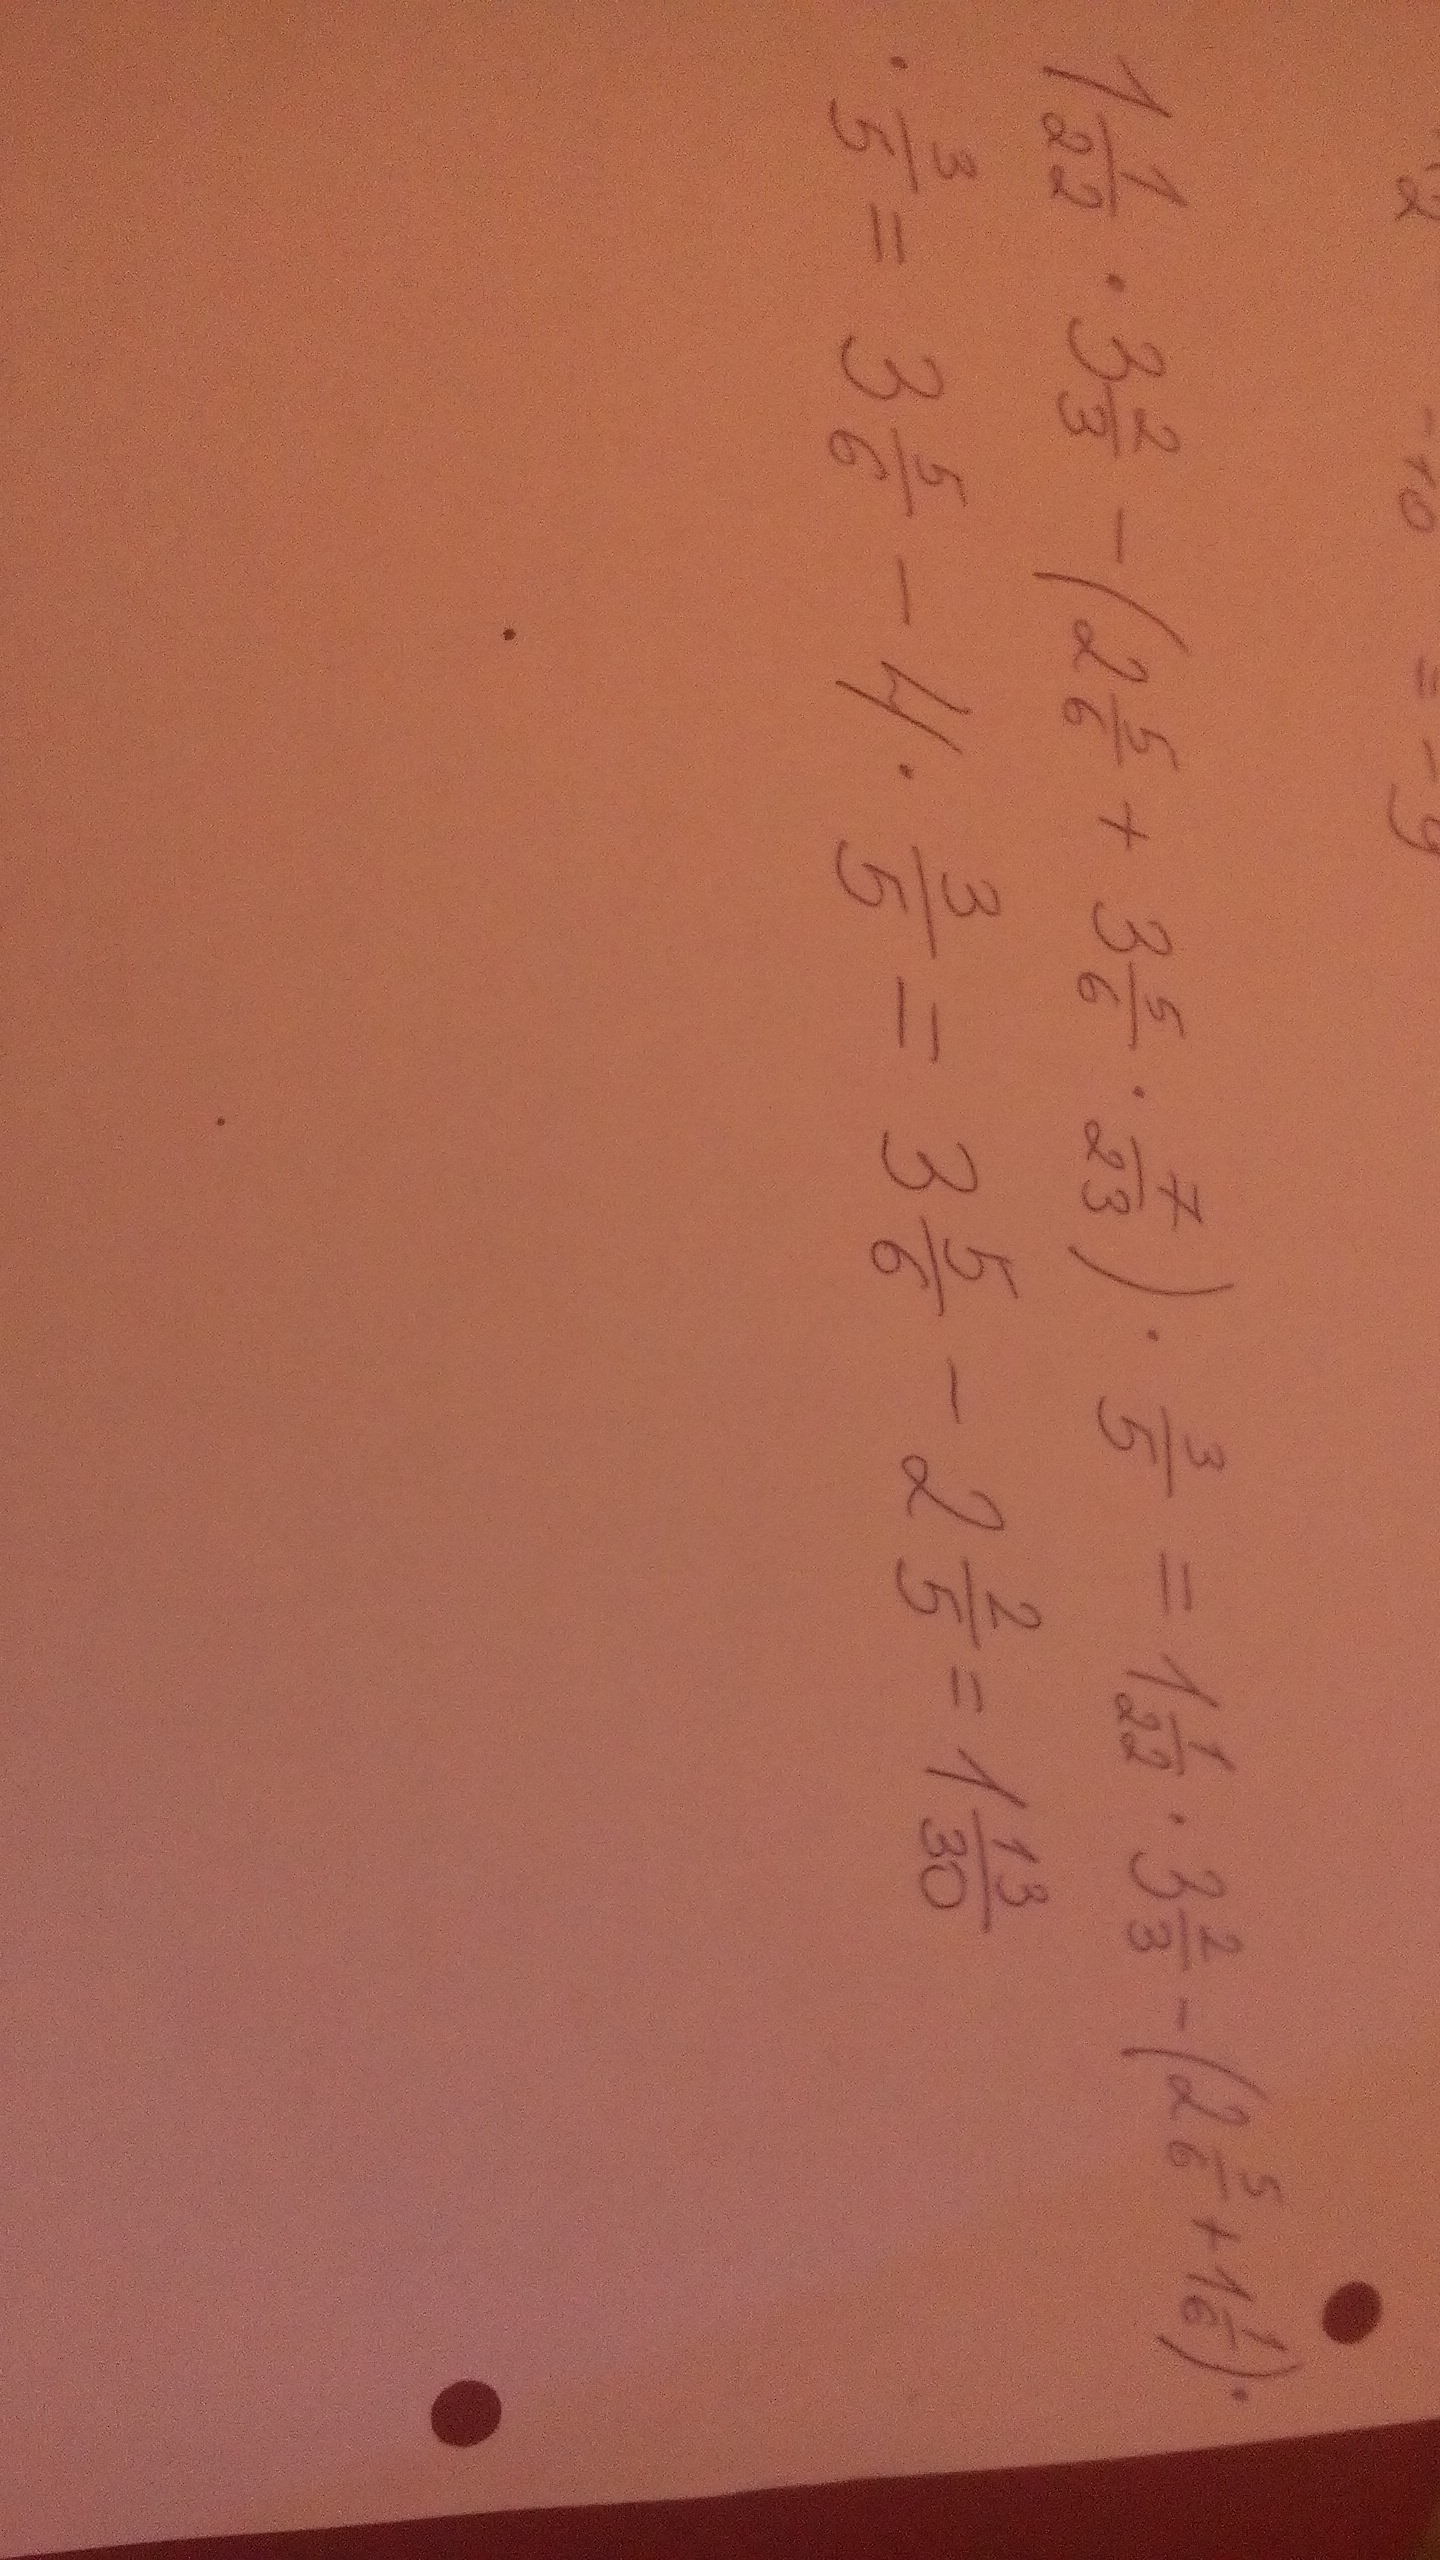 2 -10 = -9
1 1/22 · 3 2/3 - (2 5/6 + 3 5/6 · 7/23) · 3/5 = 1 1/22 · 3 2/3 - (2 5/6 + 1 1/6) ·
· 3/5 = 3 5/6 - 4 · 3/5 = 3 5/6 - 2 2/5 = 1 13/30